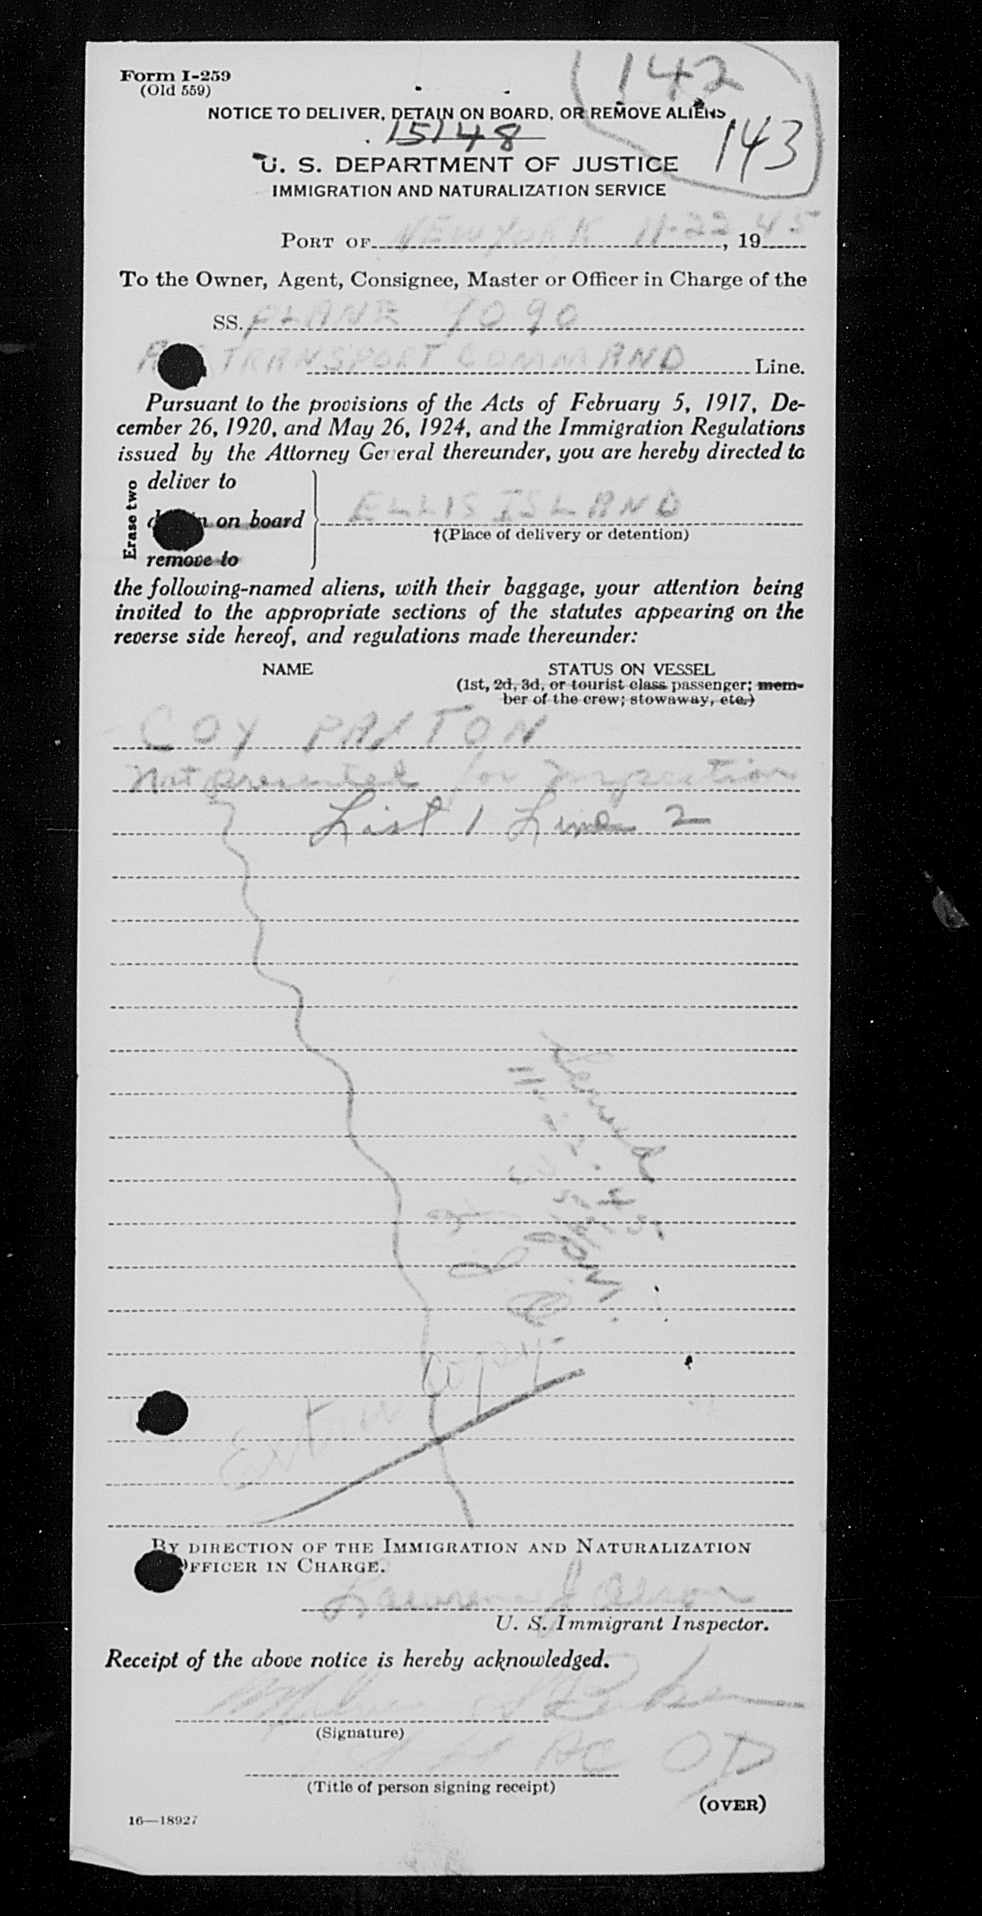 Form I-259
(Old 559)
142
143
NOTICE TO DELIVER, DETAIN ON BOARD, OR REMOVE ALIENS
15148
U. S. DEPARTMENT OF JUSTICE
IMMIGRATION AND NATURALIZATION SERVICE
PORT OF NEW YORK 11-22, 1945
To the Owner, Agent, Consignee, Master or Officer in Charge of the
SS. PLANE 9090
TRANSPORT COMMAND Line.
Pursuant to the provisions of the Acts of February 5, 1917, De-
cember 26, 1920, and May 26, 1924, and the Immigration Regulations
issued by the Attorney General thereunder, you are hereby directed to
Erase two
deliver to
on board ELLIS ISLAND
†(Place of delivery or detention)
remove to
the following-named aliens, with their baggage, your attention being
invited to the appropriate sections of the statutes appearing on the
reverse side hereof, and regulations made thereunder:
NAME STATUS ON VESSEL
(1st, 2d, 3d, or tourist class passenger; mem-
ber of the crew; stowaway, etc.)
COY PAXTON
Not presented for Inspection
List 1 Line 2
Extra copy
BY DIRECTION OF THE IMMIGRATION AND NATURALIZATION
OFFICER IN CHARGE.
Lawrence J
U. S. Immigrant Inspector.
Receipt of the above notice is hereby acknowledged.
(Signature)
AC OD
(Title of person signing receipt)
(OVER)
16—18927